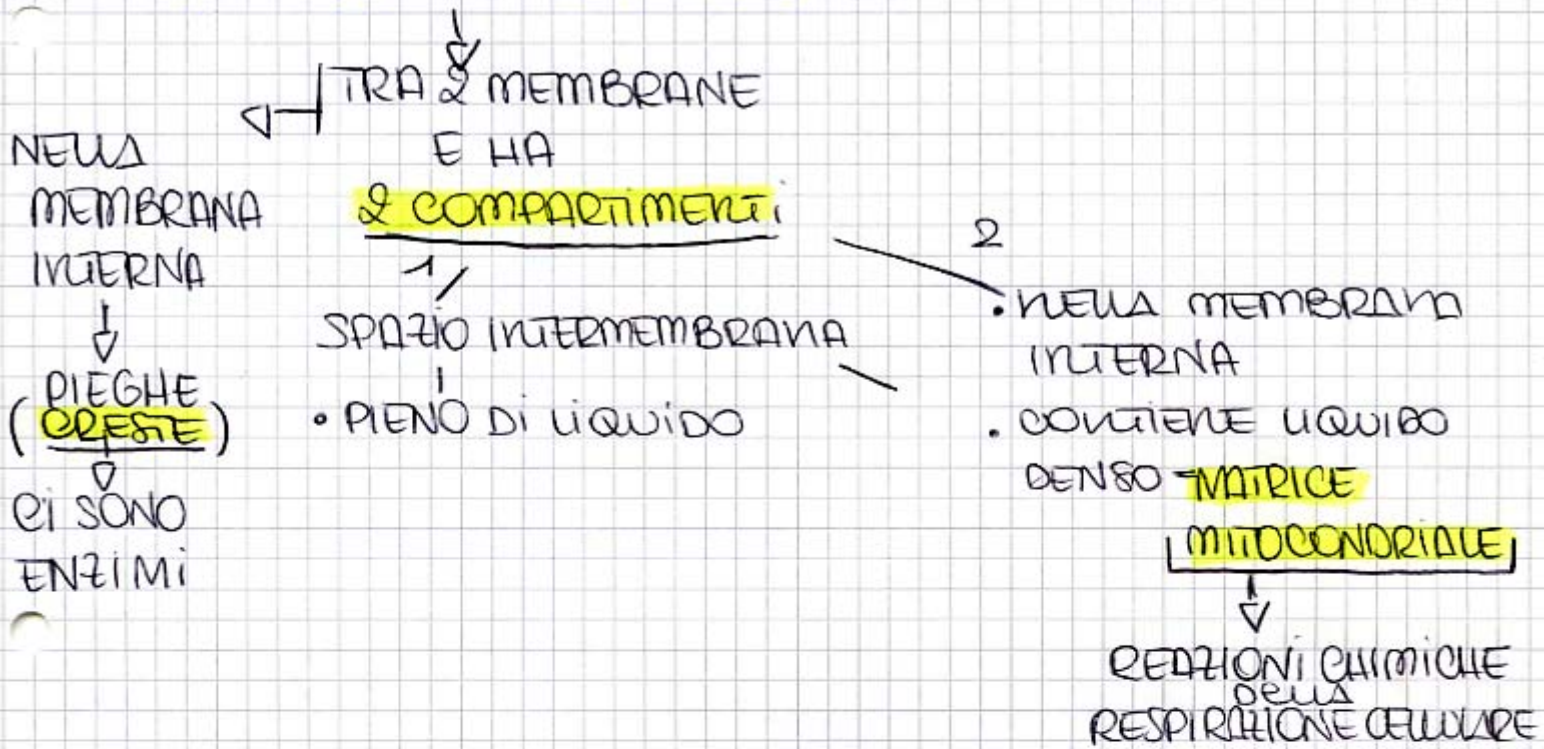 TRA 2 MEMBRANE
E HA
2 COMPARTIMENTI
NELLA
MEMBRANA
INTERNA
PIEGHE
(CRESTE)
CI SONO
ENZIMI
1
SPAZIO INTERMEMBRANA
• PIENO DI LIQUIDO
2
• NELLA MEMBRANA
INTERNA
• CONTIENE LIQUIDO
DENSO - MATRICE
MITOCONDRIALE
REAZIONI CHIMICHE
DELLA
RESPIRAZIONE CELLULARE